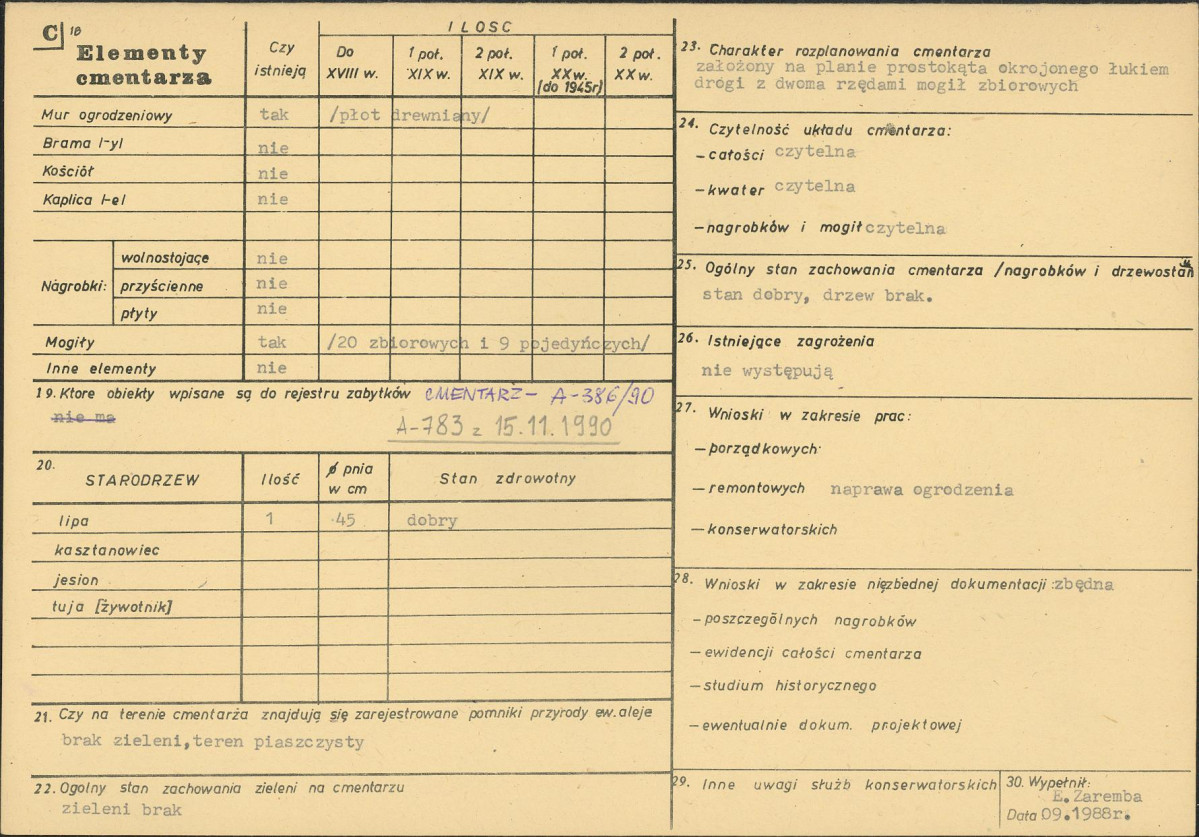 C 18
Elementy
cmentarza
Czy
istnieją
ILOSC
Do
XVIII w.
1 poł.
XIX w.
2 poł.
XIX w.
1 poł.
XX w.
(do 1945r)
2 poł.
XX w.
Mur ogrodzeniowy tak /płot drewniany/
Brama I-yl nie
Kościół nie
Kaplica I-el nie
Nagrobki:
wolnostojące nie
przyścienne nie
płyty nie
Mogiły tak /20 zbiorowych i 9 pojedyńczych/
Inne elementy nie
19. Ktore obiekty wpisane są do rejestru zabytków CMENTARZ – A-386/90
nie ma
A-783 z 15.11.1990
20.
STARODRZEW Ilość ø pnia
w cm Stan zdrowotny
lipa 1 45 dobry
kasztanowiec
jesion
tuja [żywotnik]
21. Czy na terenie cmentarża znajdują się zarejestrowane pomniki przyrody ew. aleje
brak zieleni,teren piaszczysty
22. Ogolny stan zachowania zieleni na cmentarzu
zieleni brak
23. Charakter rozplanowania cmentarza
założony na planie prostokąta okrojonego łukiem
drogi z dwoma rzędami mogił zbiorowych
24. Czytelność układu cmentarza:
– całości czytelna
– kwater czytelna
– nagrobków i mogił czytelna
25. Ogólny stan zachowania cmentarza /nagrobków i drzewostan
stan dobry, drzew brak.
26. Istniejące zagrożenia
nie występują
27. Wnioski w zakresie prac:
– porządkowych
– remontowych naprawa ogrodzenia
– konserwatorskich
28. Wnioski w zakresie niezbednej dokumentacji: zbędna
– poszczególnych nagrobków
– ewidencji całości cmentarza
– studium historycznego
– ewentualnie dokum. projektowej
29. Inne uwagi służb konserwatorskich
30. Wypełnił:
E.Zaremba
Data 09.1988r.